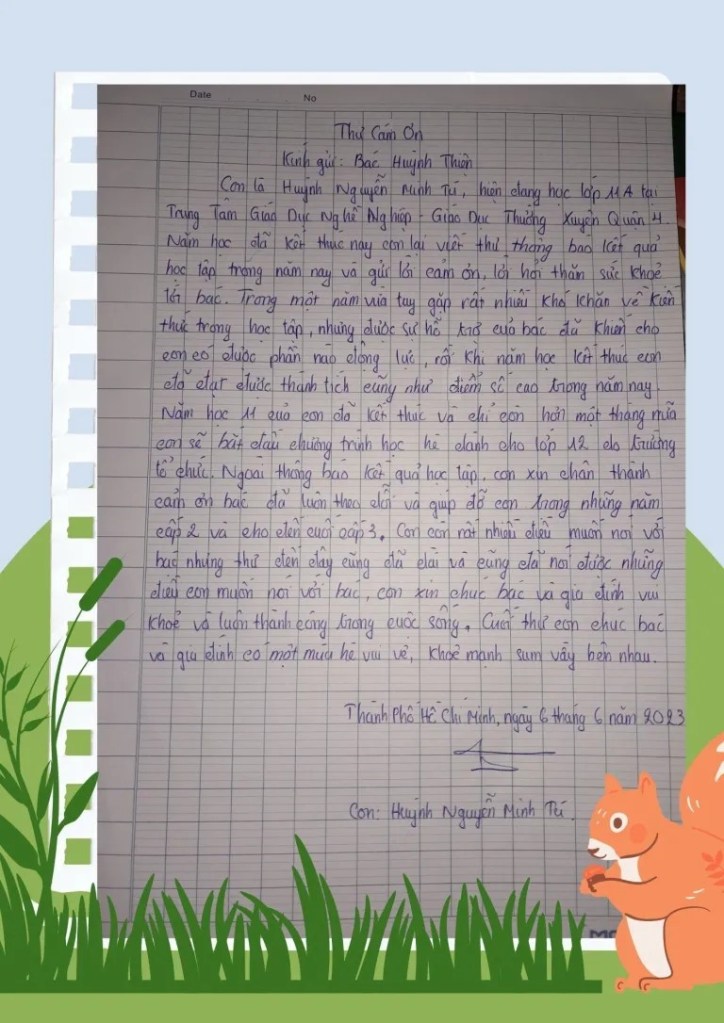 Date No
Thư Cảm Ơn
Kính gửi: Bác Huỳnh Thiện
Con là Huỳnh Nguyễn Minh Tú, hiện đang học lớp 11A tại
Trung Tâm Giáo Dục Nghề Nghiệp - Giáo Dục Thường Xuyên Quận 4.
Năm học đã kết thúc nay con lại viết thư thông báo kết quả
học tập trong năm nay và gửi lời cảm ơn, lời hỏi thăm sức khoẻ
tới bác. Trong một năm vừa tay gặp rất nhiều khó khăn về kiến
thức trong học tập, nhưng được sự hỗ trợ của bác đã khiến cho
con có được phần nào động lực, rồi khi năm học kết thúc con
đã đạt được thành tích cũng như điểm số cao trong năm nay.
Năm học 11 của con đã kết thúc và chỉ còn hơn một tháng nữa
con sẽ bắt đầu chương trình học hè dành cho lớp 12 do trường
tổ chức. Ngoài thông báo kết quả học tập, con xin chân thành
cảm ơn bác đã luôn theo dõi và giúp đỡ con trong những năm
cấp 2 và cho đến cuối cấp 3. Con còn rất nhiều điều muốn nói với
bác nhưng thư đến đây cũng đã dài và cũng đã nói được những
điều con muốn nói với bác, con xin chúc bác và gia đình vui
khoẻ và luôn thành công trong cuộc sống. Cuối thư con chúc bác
và gia đình có một mùa hè vui vẻ, khoẻ mạnh sum vầy bên nhau.
Thành Phố Hồ Chí Minh, ngày 6 tháng 6 năm 2023
Con: Huỳnh Nguyễn Minh Tú.